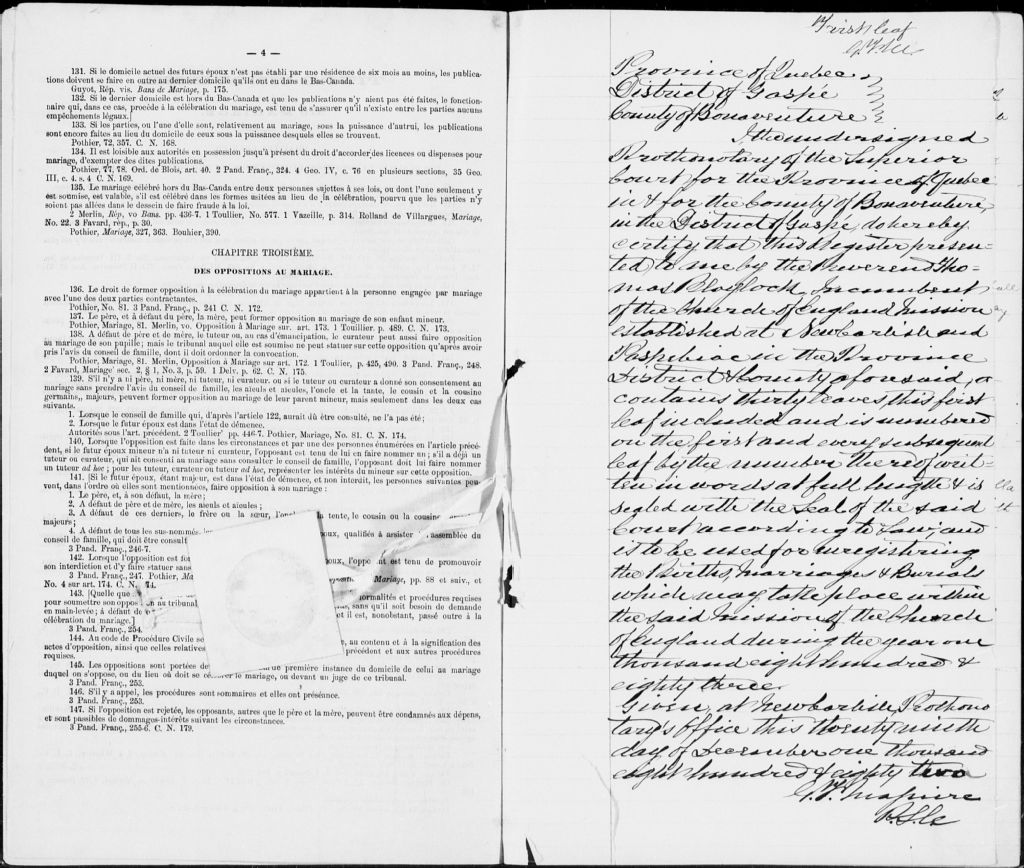 — 4 —
131. Si le domicile actuel des futurs époux n'est pas établi par une résidence de six mois au moins, les publica-
tions doivent se faire en outre au dernier domicile qu'ils ont eu dans le Bas-Canada.
Guyot, Rép. vis. Bans de Mariage, p. 175.
132. Si le dernier domicile est hors du Bas-Canada et que les publications n'y aient pas été faites, le fonction-
naire qui, dans ce cas, procède à la célébration du mariage, est tenu de s'assurer qu'il n'existe entre les parties aucuns
empêchements légaux.]
133. Si les parties, ou l'une d'elle sont, relativement au mariage, sous la puissance d'autrui, les publications
sont encore faites au lieu du domicile de ceux sous la puissance desquels elles se trouvent.
Pothier, 72, 357. C. N. 168.
134. Il est loisible aux autorités en possession jusqu'à présent du droit d'accorder des licences ou dispenses pour
mariage, d'exempter des dites publications.
Pothier, 77, 78. Ord. de Blois, art. 40. 2 Pand. Franç., 324. 4 Geo. IV, c. 76 en plusieurs sections, 35 Geo.
III, c. 4. s. 4 C. N. 169.
135. Le mariage célébré hors du Bas-Canda entre deux personnes sujettes à ses lois, ou dont l'une seulement y
est soumise, est valable, s'il est célébré dans les formes usitées au lieu de la célébration, pourvu que les parties n'y
soient pas allées dans le dessein de faire fraude à la loi.
2 Merlin, Rép, vo Bans. pp. 436-7. 1 Toullier, No. 577. 1 Vazeille, p. 314. Rolland de Villargues, Mariage,
No. 22. 3 Favard, rép., p. 30.
Pothier, Mariage, 327, 363. Bouhier, 390.
CHAPITRE TROISIÈME.
DES OPPOSITIONS AU MARIAGE.
136. Le droit de former opposition à la célébration du mariage appartient à la personne engagée par mariage
avec l'une des deux parties contractantes.
Pothier, No. 81. 3 Pand. Franç., p. 241 C. N. 172.
137. Le père, et à défaut du père, la mère, peut former opposition au mariage de son enfant mineur.
Pothier, Mariage, 81. Merlin, vo. Opposition à Mariage sur. art. 173. 1 Touillier. p. 489. C. N. 173.
138. A défaut de père et de mère, le tuteur ou, au cas d'émancipation, le curateur peut aussi faire opposition
au mariage de son pupille; mais le tribunal auquel elle est soumise ne peut statuer sur cette opposition qu'après avoir
pris l'avis du conseil de famille, dont il doit ordonner la convocation.
Pothier, Mariage, 81. Merlin, Opposition à Mariage sur art. 172. 1 Toulier, p. 425, 490. 3 Pand. Franç., 248.
2 Favard, Mariage sec. 2, § 1, No. 3, p. 59. 1 Delv. p. 62. C. N. 175.
139. S'il n'y a ni père, ni mère, ni tuteur, ni curateur, ou si le tuteur ou curateur a donné son consentement au
mariage sans prendre l'avis du conseil de famille, les aïeuls et aïeules, l'oncle et la tante, le cousin et la cousine
germains, majeurs, peuvent former opposition au mariage de leur parent mineur, mais seulement dans les deux cas
suivants.
1. Lorsque le conseil de famille qui, d'après l'article 122, aurait dû être consulté, ne l'a pas été;
2. Lorsque le futur époux est dans l'état de démence.
Autorités sous l'art. précédent. 2 Toulier pp. 446-7. Pothier, Mariage, No. 81. C. N. 174.
140, Lorsque l'opposition est faite dans les circonstances et par une des personnes énumérées en l'article précé-
dent, si le futur époux mineur n'a ni tuteur ni curateur, l'opposant est tenu de lui en faire nommer un; s'il a déjà un
tuteur ou curateur, qui ait consenti au mariage sans consulter le conseil de famille, l'opposant doit lui faire nommer
un tuteur ad hoc; pour les tuteur, curateur ou tuteur ad hoc, représenter les intérêts du mineur sur cette opposition.
141. [Si le futur époux, étant majeur, est dans l'état de démence, et non interdit, les personnes suivantes peu-
vent, dans l'ordre où elles sont mentionnées, faire opposition à son mariage:
1. Le père, et, à son défaut, la mère;
2. A défaut de père et de mère, les aïeuls et aïeules;
3. A défaut de ces derniers, le frère ou la sœur, l'on la tente, le cousin ou la cousine
majeurs;
4. A défaut de tous les sus-nommés, poux, qualifiés à assister assemblée du
conseil de famille, qui doit être consult
3 Pand. Franç., 246-7.
142. Lorsque l'opposition est fo poux, l'oppo nt est tenu de promouvoir
son interdiction et d'y faire statuer sans
3 Pand. Franç., 247. Pothier, Ma Mariage, pp. 88 et suiv., et
No. 4 sur art. 174. C. N. 174.
143. [Quelque ormalités et procédures requises
pour soumettre son oppos n au tribunal sans qu'il soit besoin de demande
en main-levée; à défaut de et il est, nonobstant, passé outre à la
célébration du mariage.]
3 Pand. Franç., 254.
144. Au code de Procédure Civile so , au contenu et à la signification des
actes d'opposition, ainsi que celles relatives précédent et aux autres procédures
requises.
145. Les oppositions sont portées de de première instance du domicile de celui au mariage
duquel on s'oppose, ou du lieu où doit se célébrer le mariage, ou devant un juge de ce tribunal.
3 Pand. Franç., 253.
146. S'il y a appel, les procédures sont sommaires et elles ont préséance.
3 Pand. Franç., 253.
147. Si l'opposition est rejetée, les opposants, autres que le père et la mère, peuvent être condamnés aux dépens,
et sont passibles de dommages-intérêts suivant les circonstances.
3 Pand. Franç., 255-6. C. N. 179.
First leaf
Province of Quebec
District of Gaspé
County of Bonaventure
I the undersigned
Prothonotary of the Superior
Court for the Province of Quebec
in & for the County of Bonaventure,
in the District of Gaspé, do hereby
certify that this Register presen-
ted to me by the Reverend Tho-
mas Blaylock, Incumbent
of the Church of England Mission
established at New Carlisle and
Paspebiac in the Province
District & County aforesaid,
contains thirty leaves, this first
leaf included and is numbered
on the first and every subsequent
leaf by the number thereof writ-
ten in words at full length & is
sealed with the Seal of the said
Court according to Law, and
it to be used for unregistring
the Births, Marriages & Burials
which may take place within
the said Mission of the Church
of England during the year one
thousand eight hundred &
eighty three.
Given, at New Carlisle, Prothono
tary's Office this twenty ninth
day of December one thousand
eight hundred & eighty two
P.S.C.